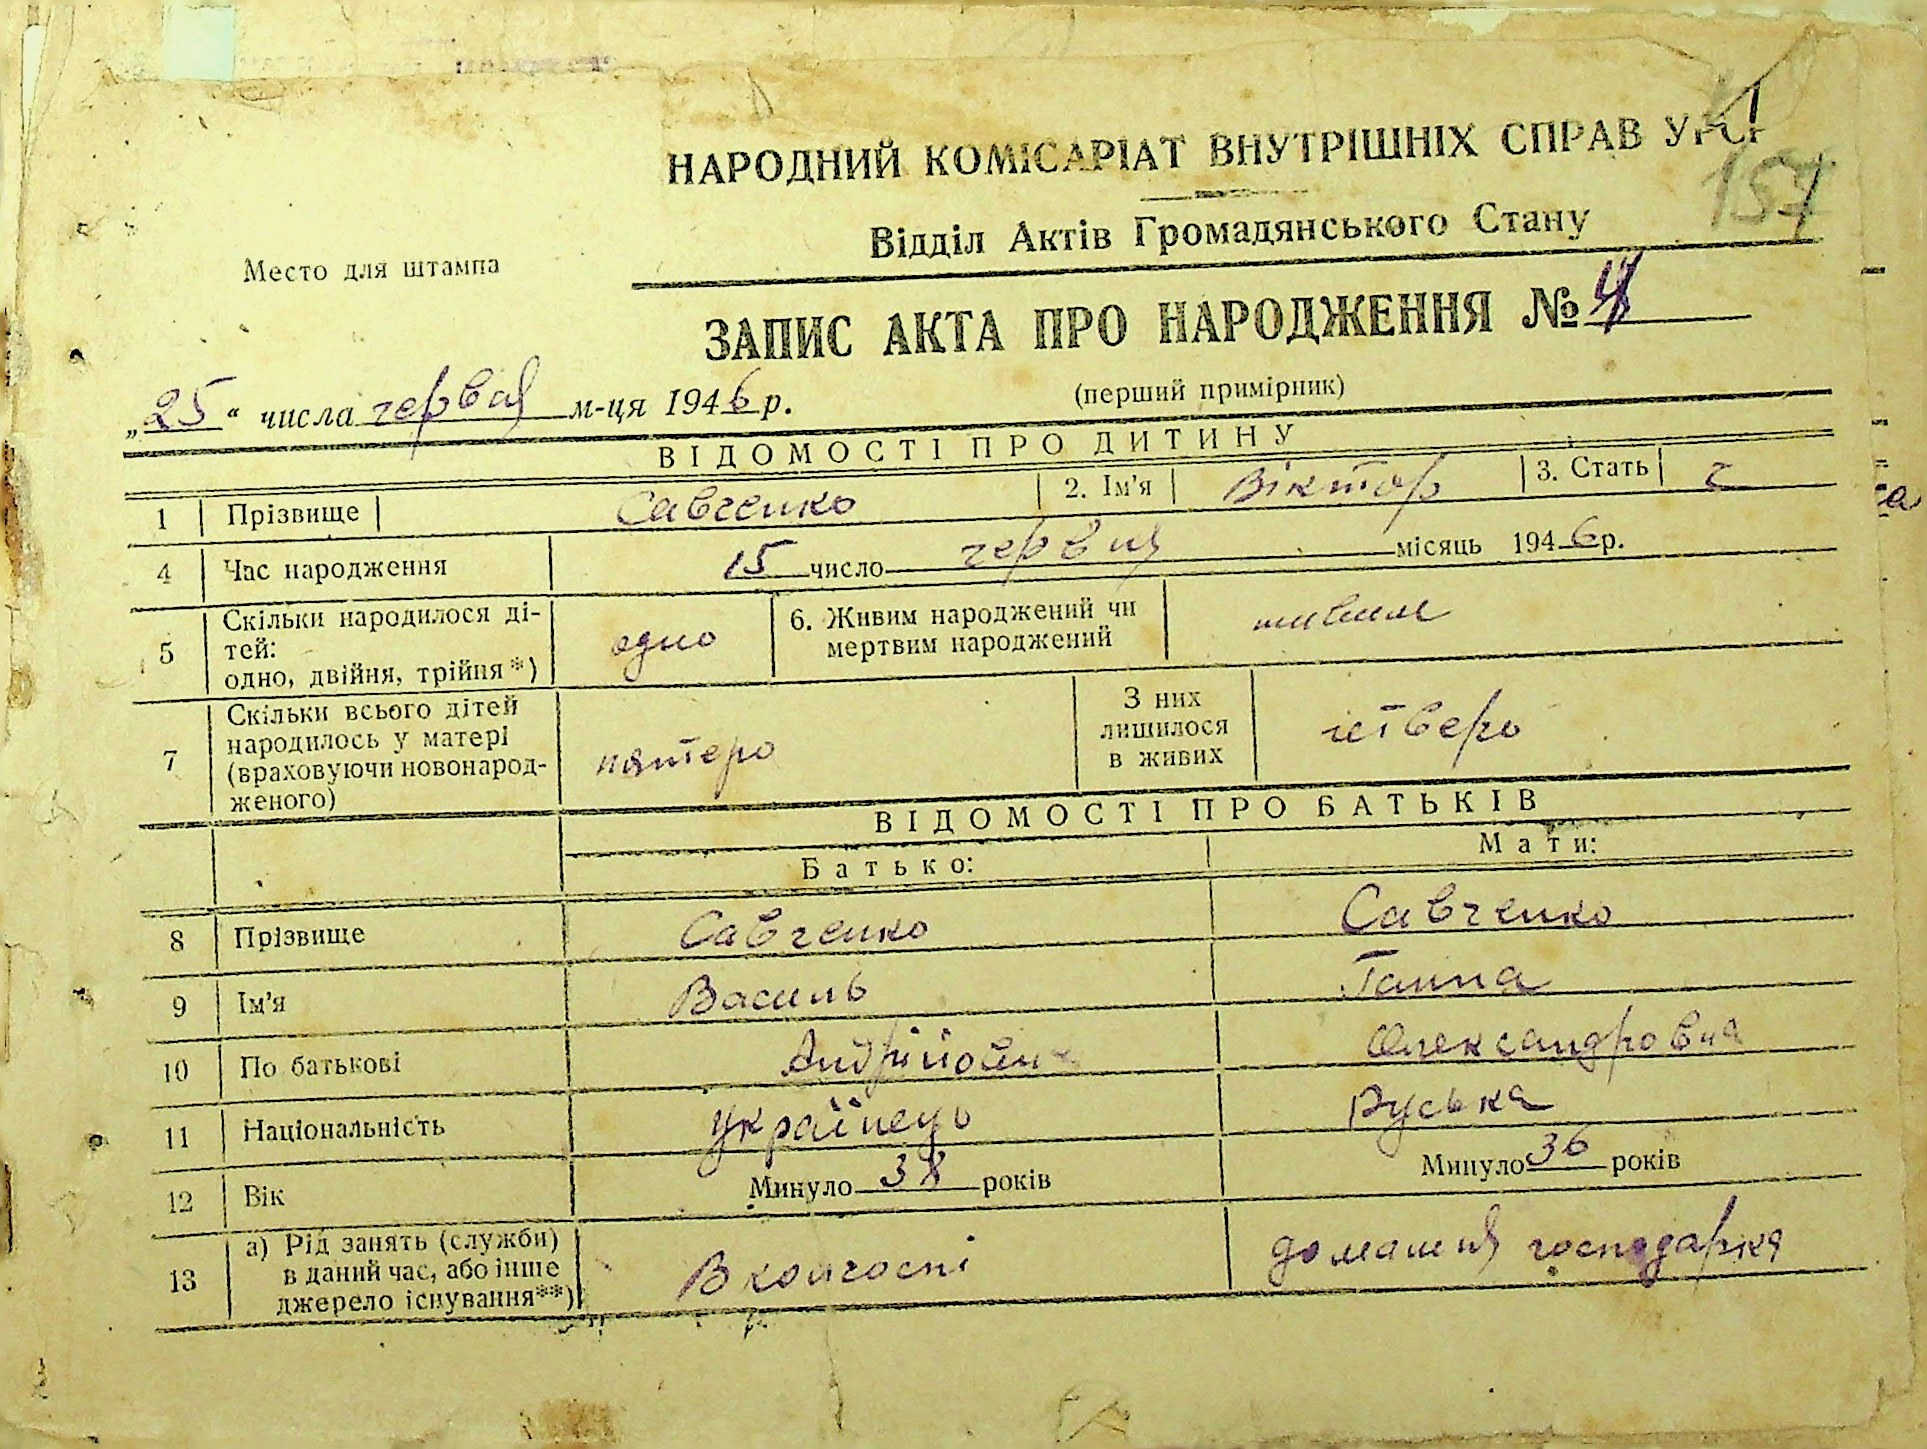 НАРОДНИЙ КОМІСАРІАТ ВНУТРІШНІХ СПРАВ УРСР
157
Відділ Актів Громадянського Стану
Место для штампа
ЗАПИС АКТА ПРО НАРОДЖЕННЯ №
(перший примірник)
„25“ числа червня м-ця 1946 р.
ВІДОМОСТІ ПРО ДИТИНУ
1 Прізвище Савченко 2. Ім'я Віктор 3. Стать ч
4 Час народження 15 число червня місяць 1946 р.
5 Скільки народилося ді-
тей:
одно, двійня, трійня*) одно 6. Живим народжений чи
мертвим народжений живим
7 Скільки всього дітей
народилось у матері
(враховуючи новонарод-
женого) пятеро З них
лишилося
в живих четверо
ВІДОМОСТІ ПРО БАТЬКІВ
Батько: Мати:
8 Прізвище Савченко Савченко
9 Ім'я Василь Ганна
10 По батькові Андрійович Олександровна
11 Національність Українець Руська
12 Вік Минуло 38 років Минуло 36 років
13 а) Рід занять (служби)
в даний час, або інше
джерело існування**) В колгоспі домашня господарка